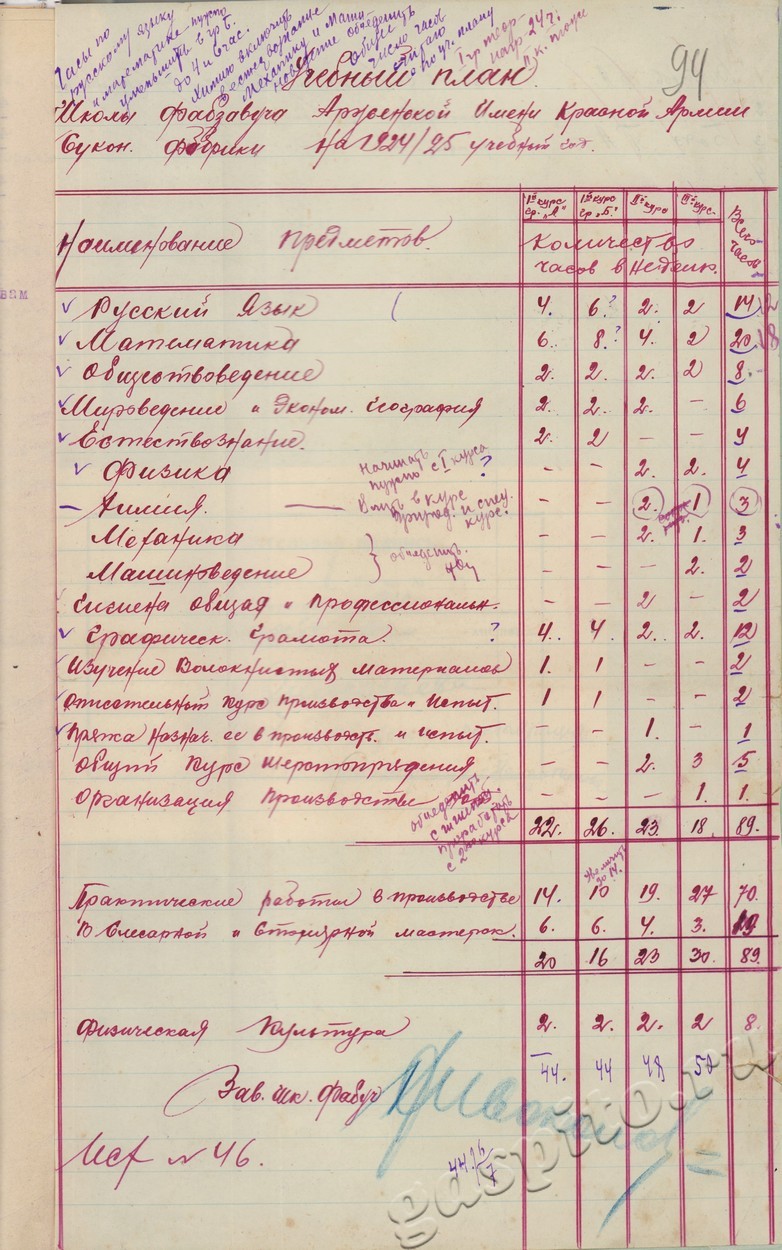 Часы по
русскому языку
и математике нужно
уменьшить в гр Б.
до 4 и 6 час.
Химию включить
в естествознание
Механику и Маши-
новедение объеденить
общее
число часов
считаю
по уч. плану
I гр теор-
24 ч.
94
Учебный план
Школы фабзавуча Арженской Имени Красной Армии
Сукон. фабрики на 1924/25 учебный год.
Наименование предметов.
Iй курс гр. „А"
Iй курс гр. „Б"
IIй курс
IIIй курс.
Всего часов
Количество
часов в неделю.
вам
Русский Язык 4. 6? 2. 2 14 12
Математика 6. 8? 4. 2 20 18
Обществоведение 2. 2. 2. 2 8
Мироведение и Эконом. География 2. 2. 2. - 6
Естествознание. 2. 2 - - 4
Физика Начинать нужно с I курса ? - - 2. 2. 4
Химия. Влить в курс природ. и спец. курс. - - 2. 1 3
Механика - - 2. 1. 3
} объеденить.
Машиноведение - - - 2. 2
Гигиена общая и профессиональн. - - 2 - 2
Графическ. Грамота. ? 4. 4. 2. 2. 12
Изучение Волокнистых материалов 1. 1 - - 2
Описательный курс производства и испыт. 1 1 - - 2
Пряжа назнач. ее в производств. и испыт. - - 1. - 1
Общий курс шерстопрядения - - 2. 3 5
Организация производства - - - 1. 1.
объеденить
с
проработать
с 2го курса
22. 26. 23. 18. 89.
Увеличить
до 14.
Практические работы в производстве 14. 10 19. 27 70.
В Слесарной и Столярной мастерск. 6. 6. 4. 3. 19
20 16 23 30. 89.
Физическая культура 2. 2. 2. 2 8.
44. 44 48 50
Зав. шк. Фабуч
Исх № 46.
gaspito.ru